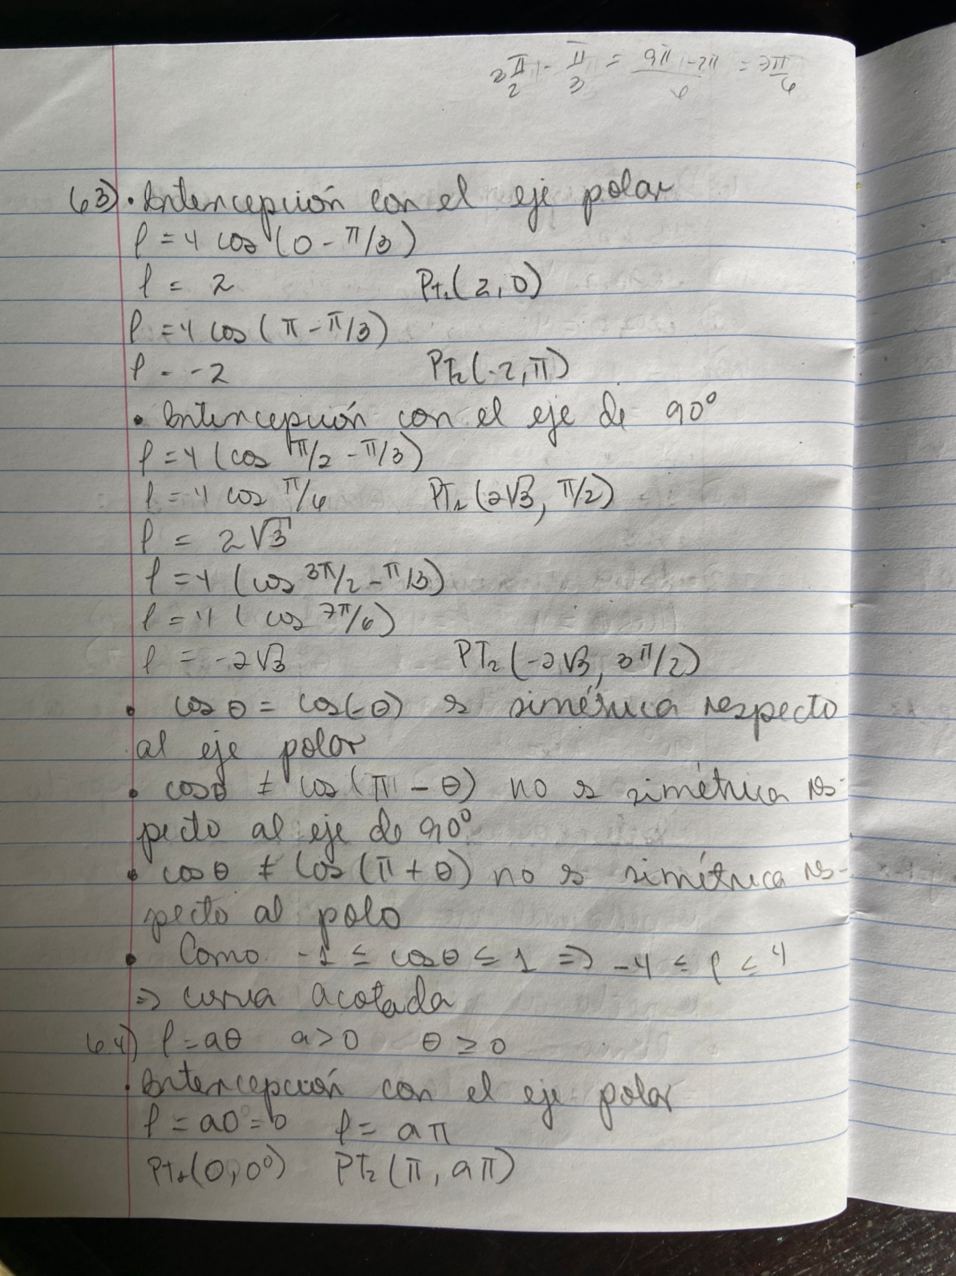 3π/2 - π/3 = 9π-2π/6 = 7π/6
63) • Intercepción con el eje polar
ρ = 4 cos (0 - π/3)
ρ = 2 PT₁(2,0)
ρ = 4 cos (π - π/3)
ρ = -2 PT₂(-2,π)
• Intercepción con el eje de 90°
ρ = 4 (cos π/2 - π/3)
ρ = 4 cos π/6 PT₁(2√3, π/2)
ρ = 2√3
ρ = 4 (cos 3π/2 - π/3)
ρ = 4 (cos 7π/6)
ρ = -2√3 PT₂(-2√3, 3π/2)
• cos θ = cos(-θ) es simétrica respecto
al eje polar
• cosθ ≠ cos(π - θ) no es simétrica res-
pecto al eje de 90°
• cosθ ≠ cos(π + θ) no es simétrica res-
pecto al polo
• Como -1 ≤ cosθ ≤ 1 ⇒ -4 ≤ ρ ≤ 4
⇒ curva acotada
64) ρ = aθ a>0 θ ≥ 0
• Intercepción con el eje polar
ρ = a0° = 0 ρ = aπ
PT₁(0,0°) PT₂(π, aπ)